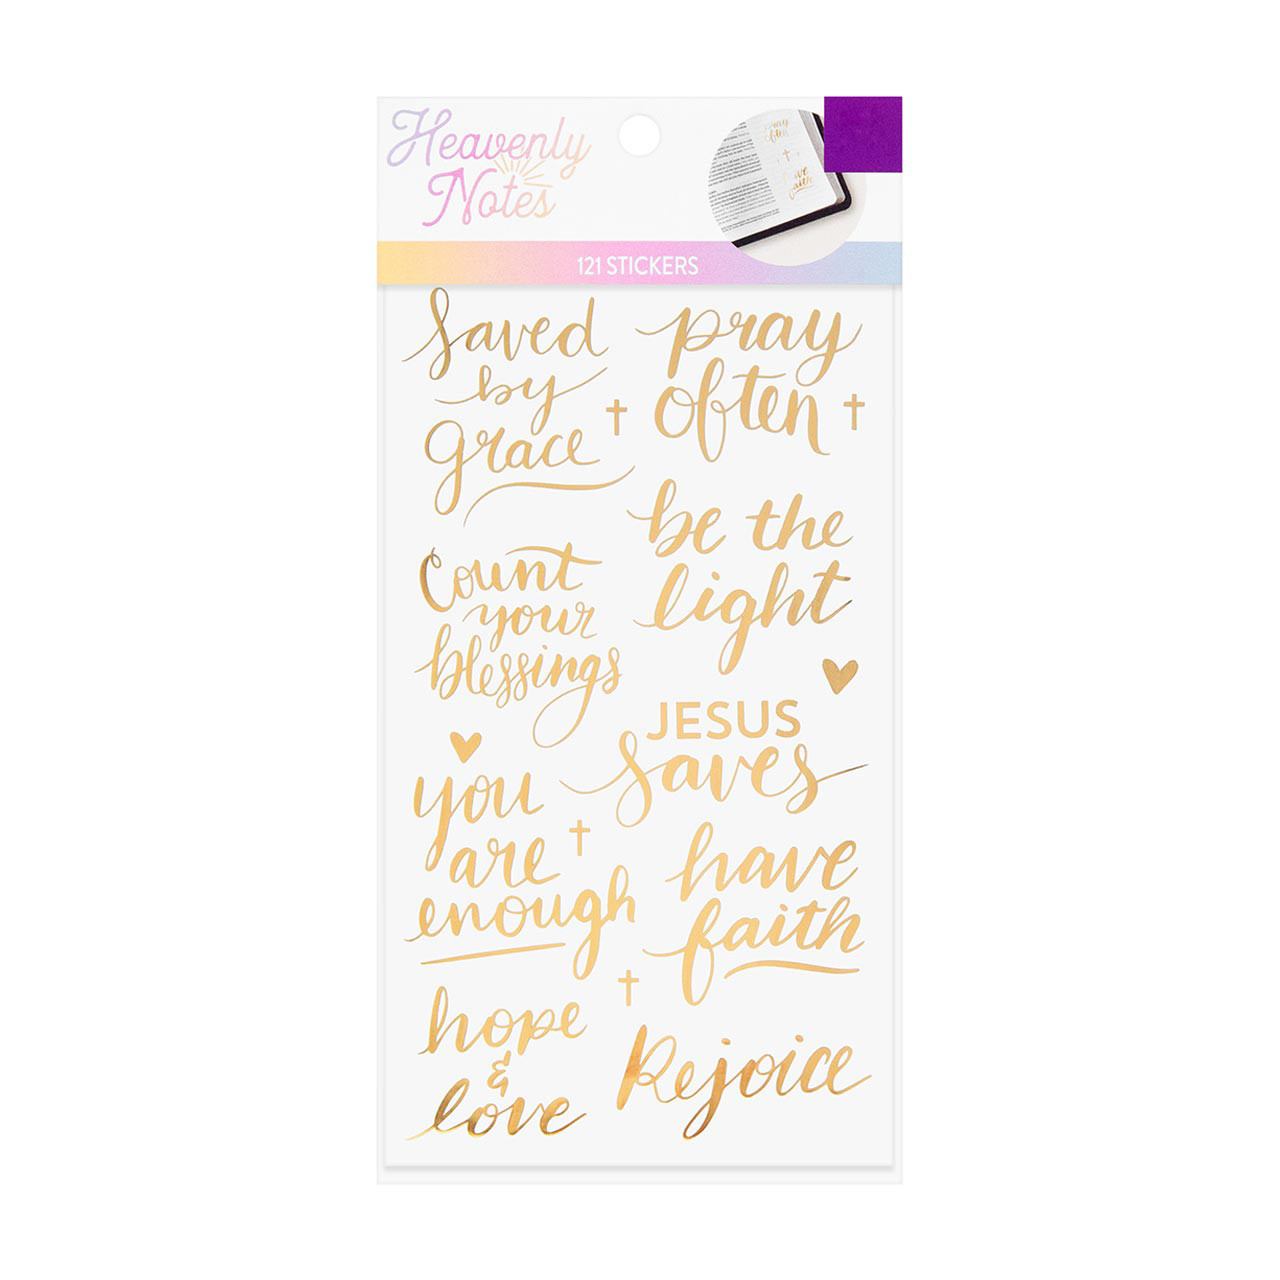 Heavenly
Notes
pray
often
have
faith
121 STICKERS
Saved
by
grace
pray
often
be the
light
Count
your
blessings
JESUS
saves
you
are
enough
have
faith
hope
&
love
Rejoice